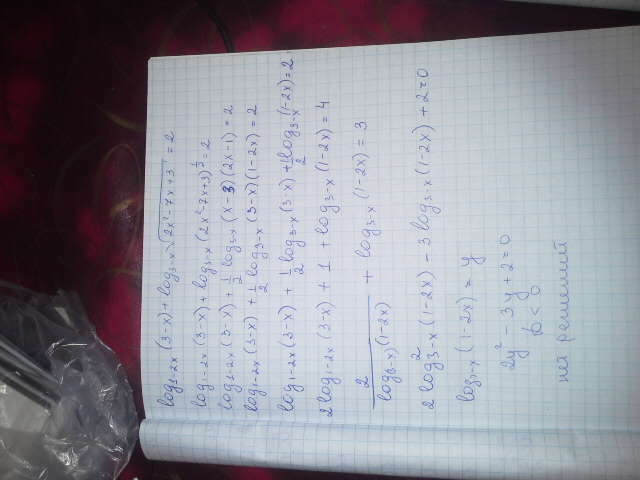 log₁₋₂ₓ(3-x) + log₃₋ₓ√(2x²-7x+3) = 2
log₁₋₂ₓ(3-x) + log₃₋ₓ(2x²-7x+3)^½ = 2
log₁₋₂ₓ(3-x) + ½ log₃₋ₓ(x-3)(2x-1) = 2
log₁₋₂ₓ(3-x) + ½ log₃₋ₓ(3-x)(1-2x) = 2
log₁₋₂ₓ(3-x) + ½ log₃₋ₓ(3-x) + ½ log₃₋ₓ(1-2x) = 2
2 log₁₋₂ₓ(3-x) + 1 + log₃₋ₓ(1-2x) = 4
2/log₍₃₋ₓ₎(1-2x) + log₃₋ₓ(1-2x) = 3
2 log²₃₋ₓ(1-2x) - 3 log₃₋ₓ(1-2x) + 2 = 0
log₃₋ₓ(1-2x) = y
2y² - 3y + 2 = 0
D < 0
нет решений